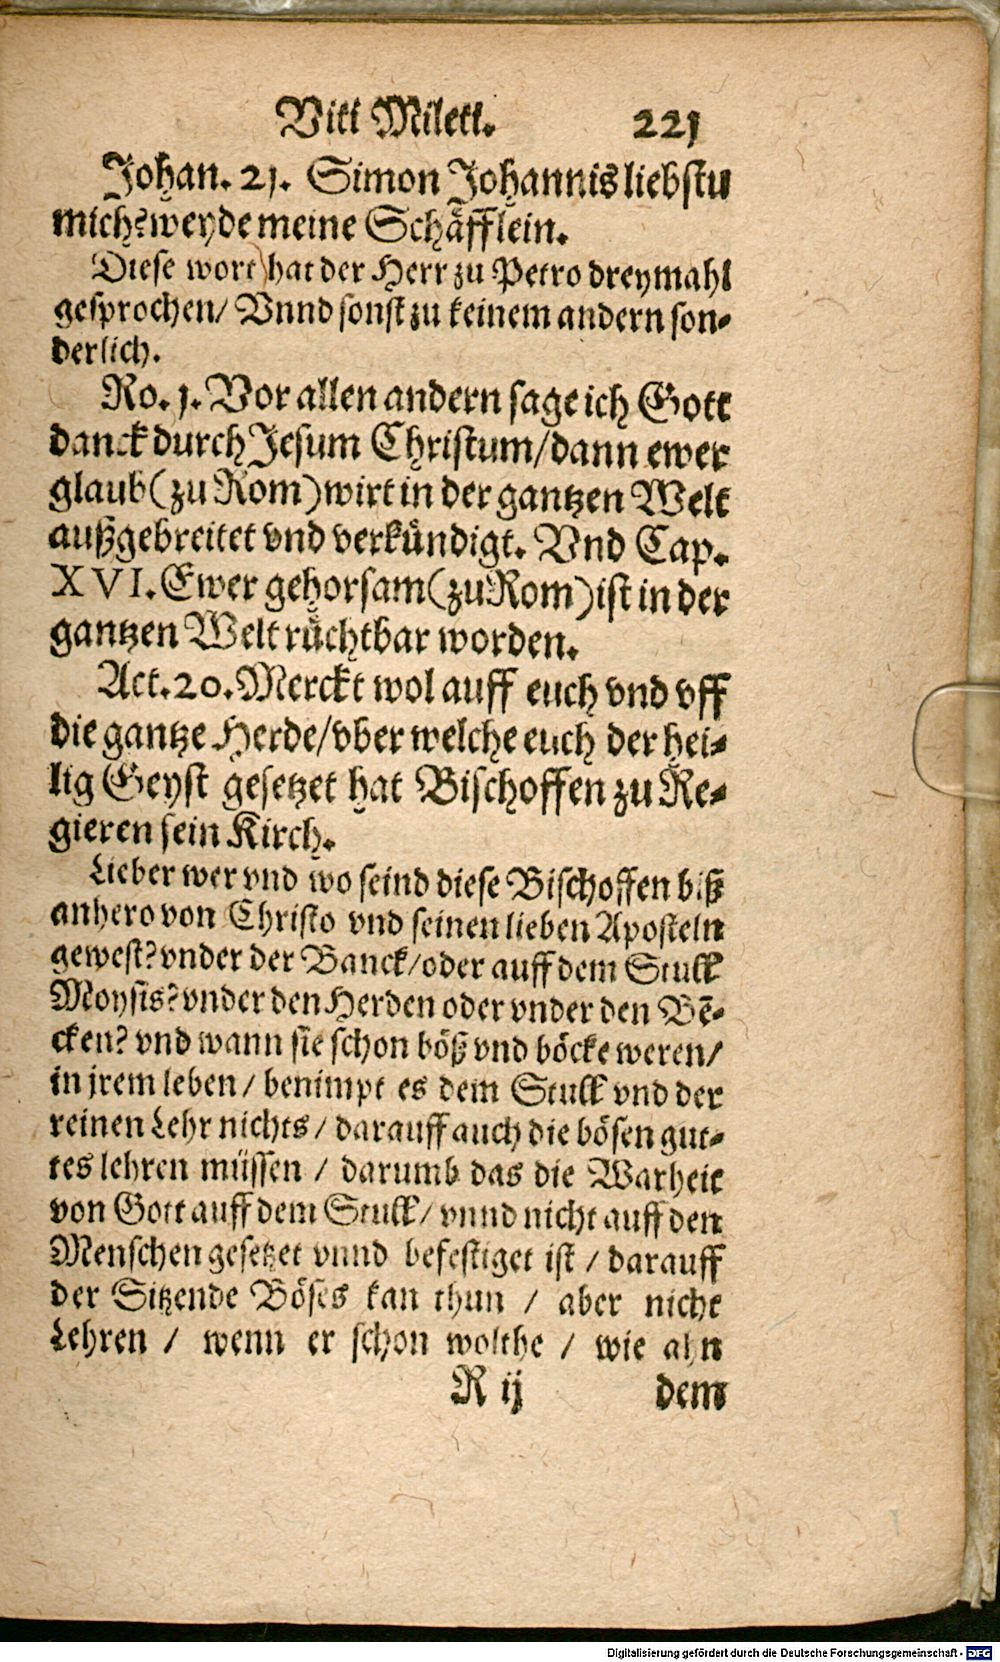 Vitt Milett. 221
Johan. 21. Simon Johannis liebstu
mich? weyde meine Schäfflein.
Diese wort hat der Herr zu Petro dreymahl
gesprochen/ Vnnd sonst zu keinem andern son-
derlich.
Ro. 1. Vor allen andern sage ich Gott
danck durch Jesum Christum/ dann ewer
glaub (zu Rom) wirt in der gantzen Welt
außgebreitet vnd verkündigt. Vnd Cap.
XVI. Ewer gehorsam (zu Rom) ist in der
gantzen Welt rüchtbar worden.
Act. 20. Merckt wol auff euch vnd vff
die gantze Herde/ vber welche euch der hei-
lig Geyst gesetzet hat Bischoffen zu Re-
gieren sein Kirch.
Lieber wer vnd wo seind diese Bischoffen biß
anhero von Christo vnd seinen lieben Aposteln
gewest? vnder der Banck/ oder auff dem Stull
Moysis? vnder den Herden oder vnder den Bē-
cken? vnd wann sie schon böß vnd böcke weren/
in jrem leben/ benimpt es dem Stull vnd der
reinen Lehr nichts/ darauff auch die bösen gut-
tes lehren müssen/ darumb das die Warheit
von Gott auff dem Stull/ vnnd nicht auff den
Menschen gesetzet vnnd befestiget ist/ darauff
der Sitzende Böses kan thun/ aber nicht
Lehren/ wenn er schon wolthe/ wie ahn
R ij dem
Digitalisierung gefördert durch die Deutsche Forschungsgemeinschaft - DFG